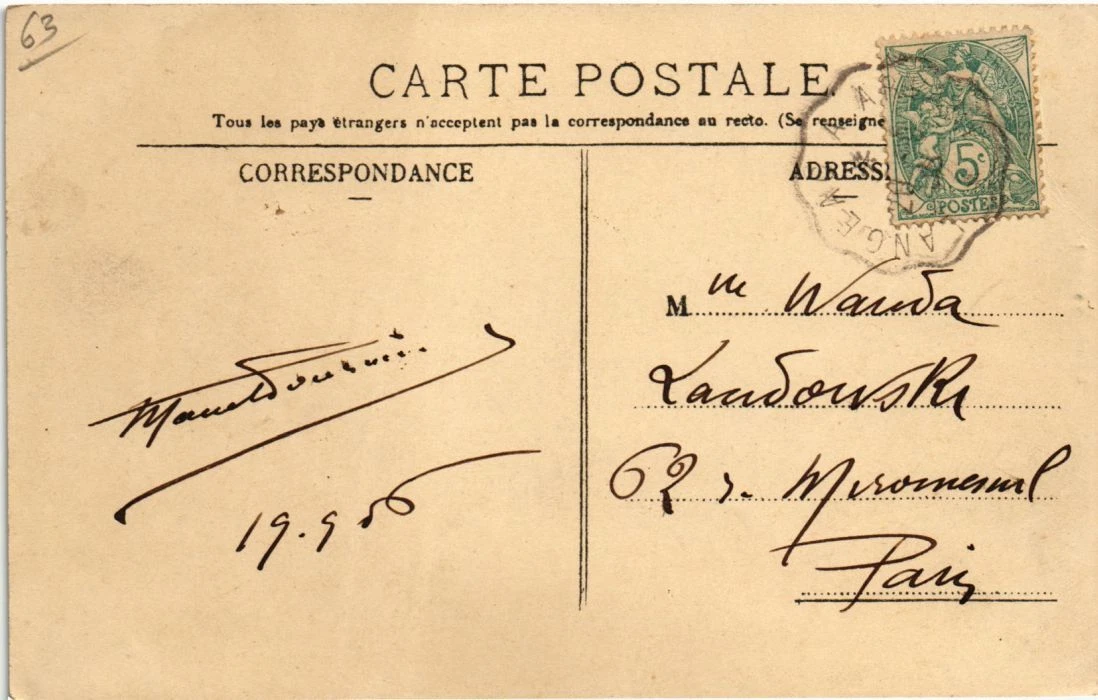 63
CARTE POSTALE
Tous les pays étrangers n'acceptent pas la correspondance au recto. (Se renseigne
CORRESPONDANCE
ADRESSE
5c
POSTES
ANGE
Mme Wanda
Landowski
62 r. Miromesnil
Paris
Marcel
19.9 06